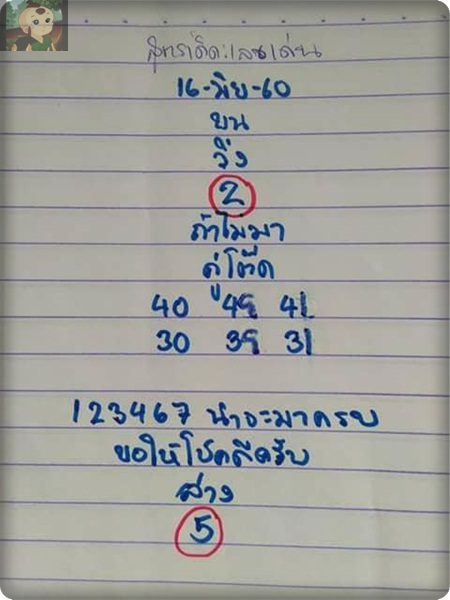 สูตรเด็ดเลขเด่น
16-มิย-60
บน
วิ่ง
2
ถ้าไม่มา
คู่โต๊ด
40 49 41
30 39 31
123467 น่าจะมาครบ
ขอให้โชคดีครับ
ล่าง
5